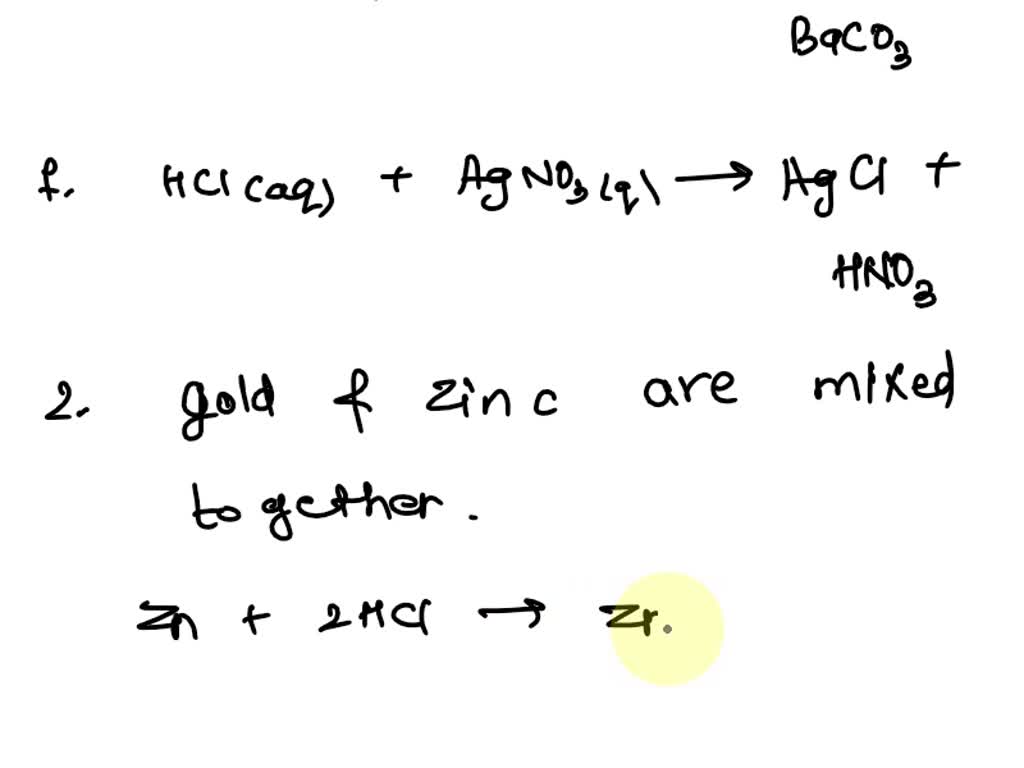 BaCO3
f. HCl(aq) + AgNO3(q) → AgCl +
HNO3
2. gold & zinc are mixed
together.
Zn + 2HCl → Zr